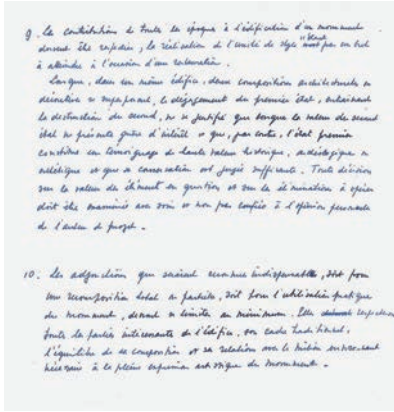 9. Les contributions de toutes les époques à l'édification d'un monument
doivent être respectées, la réalisation de l'unité de style n'étant pas un but
à atteindre à l'occasion d'une restauration.
Lorsque, dans un même édifice, deux compositions architecturales ou
décoratives se superposent, le dégagement du premier état, entraînant
la destruction du second, ne se justifie que lorsque la valeur du second
état ne présente guère d'intérêt et que, par contre, l'état premier
constitue un témoignage de haute valeur historique, archéologique ou
esthétique et que sa conservation est jugée suffisante. Toute décision
sur la valeur des éléments en question et sur les éliminations à opérer
doit être examinée avec soin et non pas confiée à l'opinion personnelle
de l'auteur du projet.
10. Les adjonctions qui seraient reconnues indispensables, soit pour
une recomposition totale ou partielle, soit pour l'utilisation pratique
du monument, devront se limiter au minimum. Elles respecteront
toutes les parties intéressantes de l'édifice, son cadre traditionnel,
l'équilibre de sa composition et sa relation avec le milieu environnant
nécessaire à la pleine expression artistique du monument.